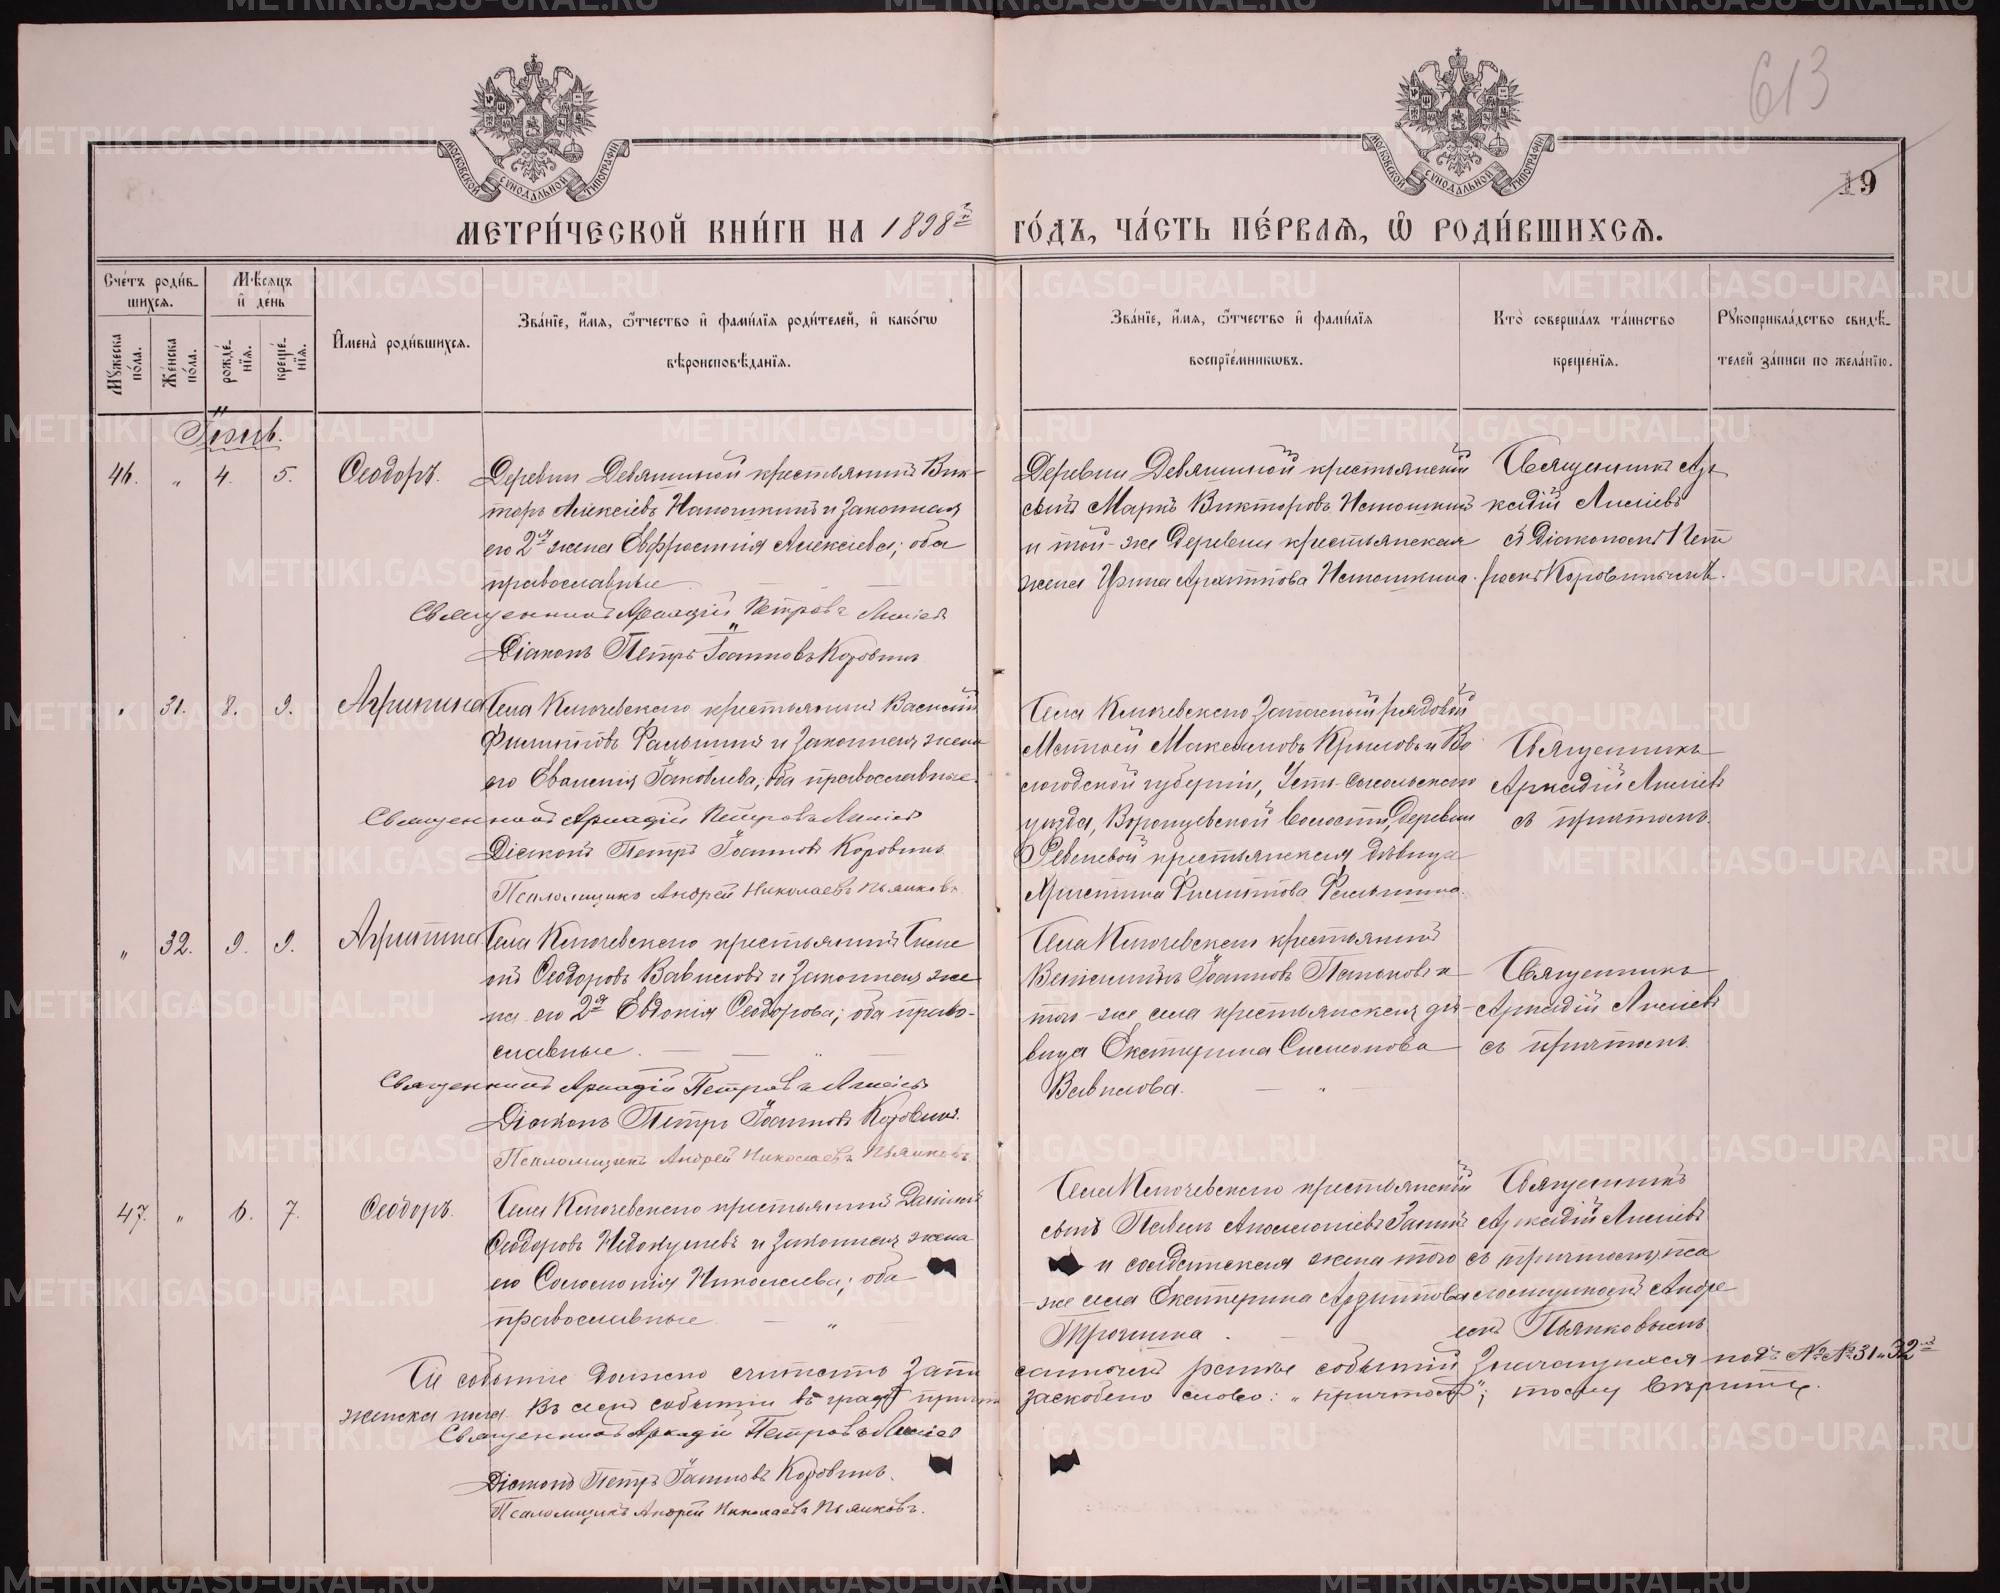 613
19
МОСКОВСКОЙ СѴНОДАЛЬНОЙ ТИПОГРАФІИ
МОСКОВСКОЙ СѴНОДАЛЬНОЙ ТИПОГРАФІИ
МЕТРИ́ЧЕСКОЙ КНИ́ГИ НА 1898й ГО́ДЪ, ЧА́СТЬ ПЕ́РВАѦ, Ѽ РОДИ́ВШИХСѦ.
Сче́тъ роди́вшихсѧ.
Мѣ́сѧцъ и҆ де́нь
Мꙋ́жеска по́ла.
Же́нска по́ла.
рожде́нїѧ.
креще́нїѧ.
И҆мена̀ роди́вшихсѧ.
Зва́нїе, и҆́мѧ, ѻ҆́тчество и҆ фами́лїѧ роди́телей, и҆ како́гѡ вѣроисповѣ́данїѧ.
Зва́нїе, и҆́мѧ, ѻ҆́тчество и҆ фами́лїѧ воспрїе́мникѡвъ.
Кто̀ соверша́лъ та́инство креще́нїѧ.
Рꙋкоприкла́дство свидѣ́телей за́писи по жела́нїю.
Іюнь.
46. „ 4. 5. Ѳеодоръ.
Деревни Девяшиной крестьянинъ Вик-
торъ Алексіевъ Истошкинъ и законная
его 2я жена Евфросинія Алексіева; оба
православные
Священникъ Аркадій Петровъ
Діаконъ Петръ Іоанновъ Коровинъ
Деревни Девяшиной крестьянскій
сынъ Маркъ Викторовъ Истошкинъ
и той-же деревни крестьянская
жена Ирина Архиппова Истошкина.
Священникъ Ар-
кадій
съ Діакономъ Пет-
ромъ Коровинымъ.
„ 31. 8. 9. Агрипина
Села Ключевского крестьянинъ Василій
Филипповъ и законная жена
его Евгенія Іаковлева; оба православные.
Священникъ Аркадій Петровъ
Діаконъ Петръ Іоанновъ Коровинъ
Псаломщикъ Андрей Николаевъ Пьянковъ.
Села Ключевского запасный рядовой
Матѳей Максимовъ Крыловъ и Во-
логодской губерніи, Усть-Сысольского
уѣзда, волости, деревни
крестьянская дѣвица
Христина Филиппова
Священникъ
Аркадій
съ причтомъ.
„ 32. 9. 9. Агрипина
Села Ключевского крестьянинъ Симе-
онъ Ѳеодоровъ Вавиловъ и законная же-
на его 2я Евдокія Ѳеодорова; оба право-
славные.
Священникъ Аркадій Петровъ
Діаконъ Петръ Іоанновъ Коровинъ.
Псаломщикъ Андрей Николаевъ Пьянковъ.
Села Ключевского крестьянинъ
Веніаминъ Іоанновъ Паньковъ и
того-же села крестьянская дѣ-
вица Екатерина Симеонова
Вавилова.
Священникъ
Аркадій
съ причтомъ.
47. „ 6. 7. Ѳеодоръ.
Села Ключевского крестьянинъ Даніилъ
Ѳеодоровъ и законная жена
его Соломонія Николаева; оба
православные
Села Ключевского крестьянскій
сынъ Павелъ
и солдатская жена того-
же села Екатерина
Трошина.
Священникъ
Аркадій
съ причтомъ пса-
ломщикомъ Андре-
емъ Пьянковымъ
Сіе событіе должно считать записаннымъ ранѣе событій значащихся подъ №№ 31 и 32й
женска пола. Въ семъ событіи въ графѣ заскоблено слово: „причтомъ"; тому вѣрить.
Священникъ Аркадій Петровъ
Діаконъ Петръ Іоанновъ Коровинъ.
Псаломщикъ Андрей Николаевъ Пьянковъ.
METRIKI.GASO-URAL.RU